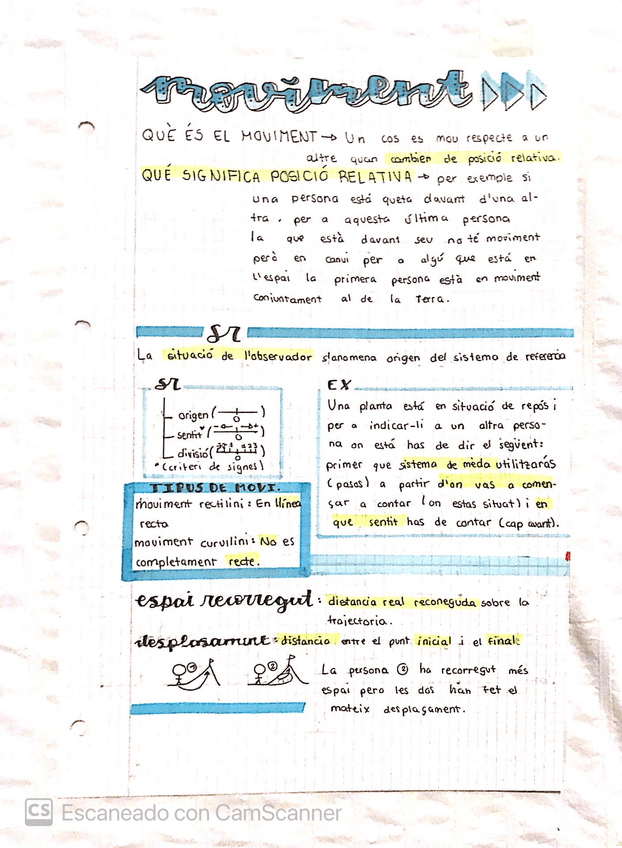 moviment
QUÈ ÉS EL MOVIMENT → Un cos es mou respecte a un
altre quan cambien de posició relativa.
QUÉ SIGNIFICA POSICIÓ RELATIVA → per exemple si
una persona está queta davant d'una al-
tra, per a aquesta última persona
la que està davant seu no té moviment
però en canvi per a algú que està en
l'espai la primera persona està en moviment
conjuntament al de la Terra.
SR
La situació de l'observador s'anomena origen del sistema de referencia
SR
origen ( 0 )
sentit* ( - + 0 )
divisió (
*(criteri de signes)
EX
Una planta està en situació de repós i
per a indicar-li a un altra perso-
na on està has de dir el següent:
primer que sistema de mèda utilitzaràs
(pasos) a partir d'on vas a comen-
çar a contar (on estas situat) i en
que sentit has de contar (cap avant).
TIPUS DE MOVI.
moviment rectilini: En llínea
recta
moviment curvilini: No es
completament recte.
espai recorregut: distancia real recorreguda sobre la
trajectoria.
desplasament: distancia entre el punt inicial i el final:
1 2
La persona 2 ha recorregut més
espai pero les dos han fet el
mateix desplaçament.
CS Escaneado con CamScanner